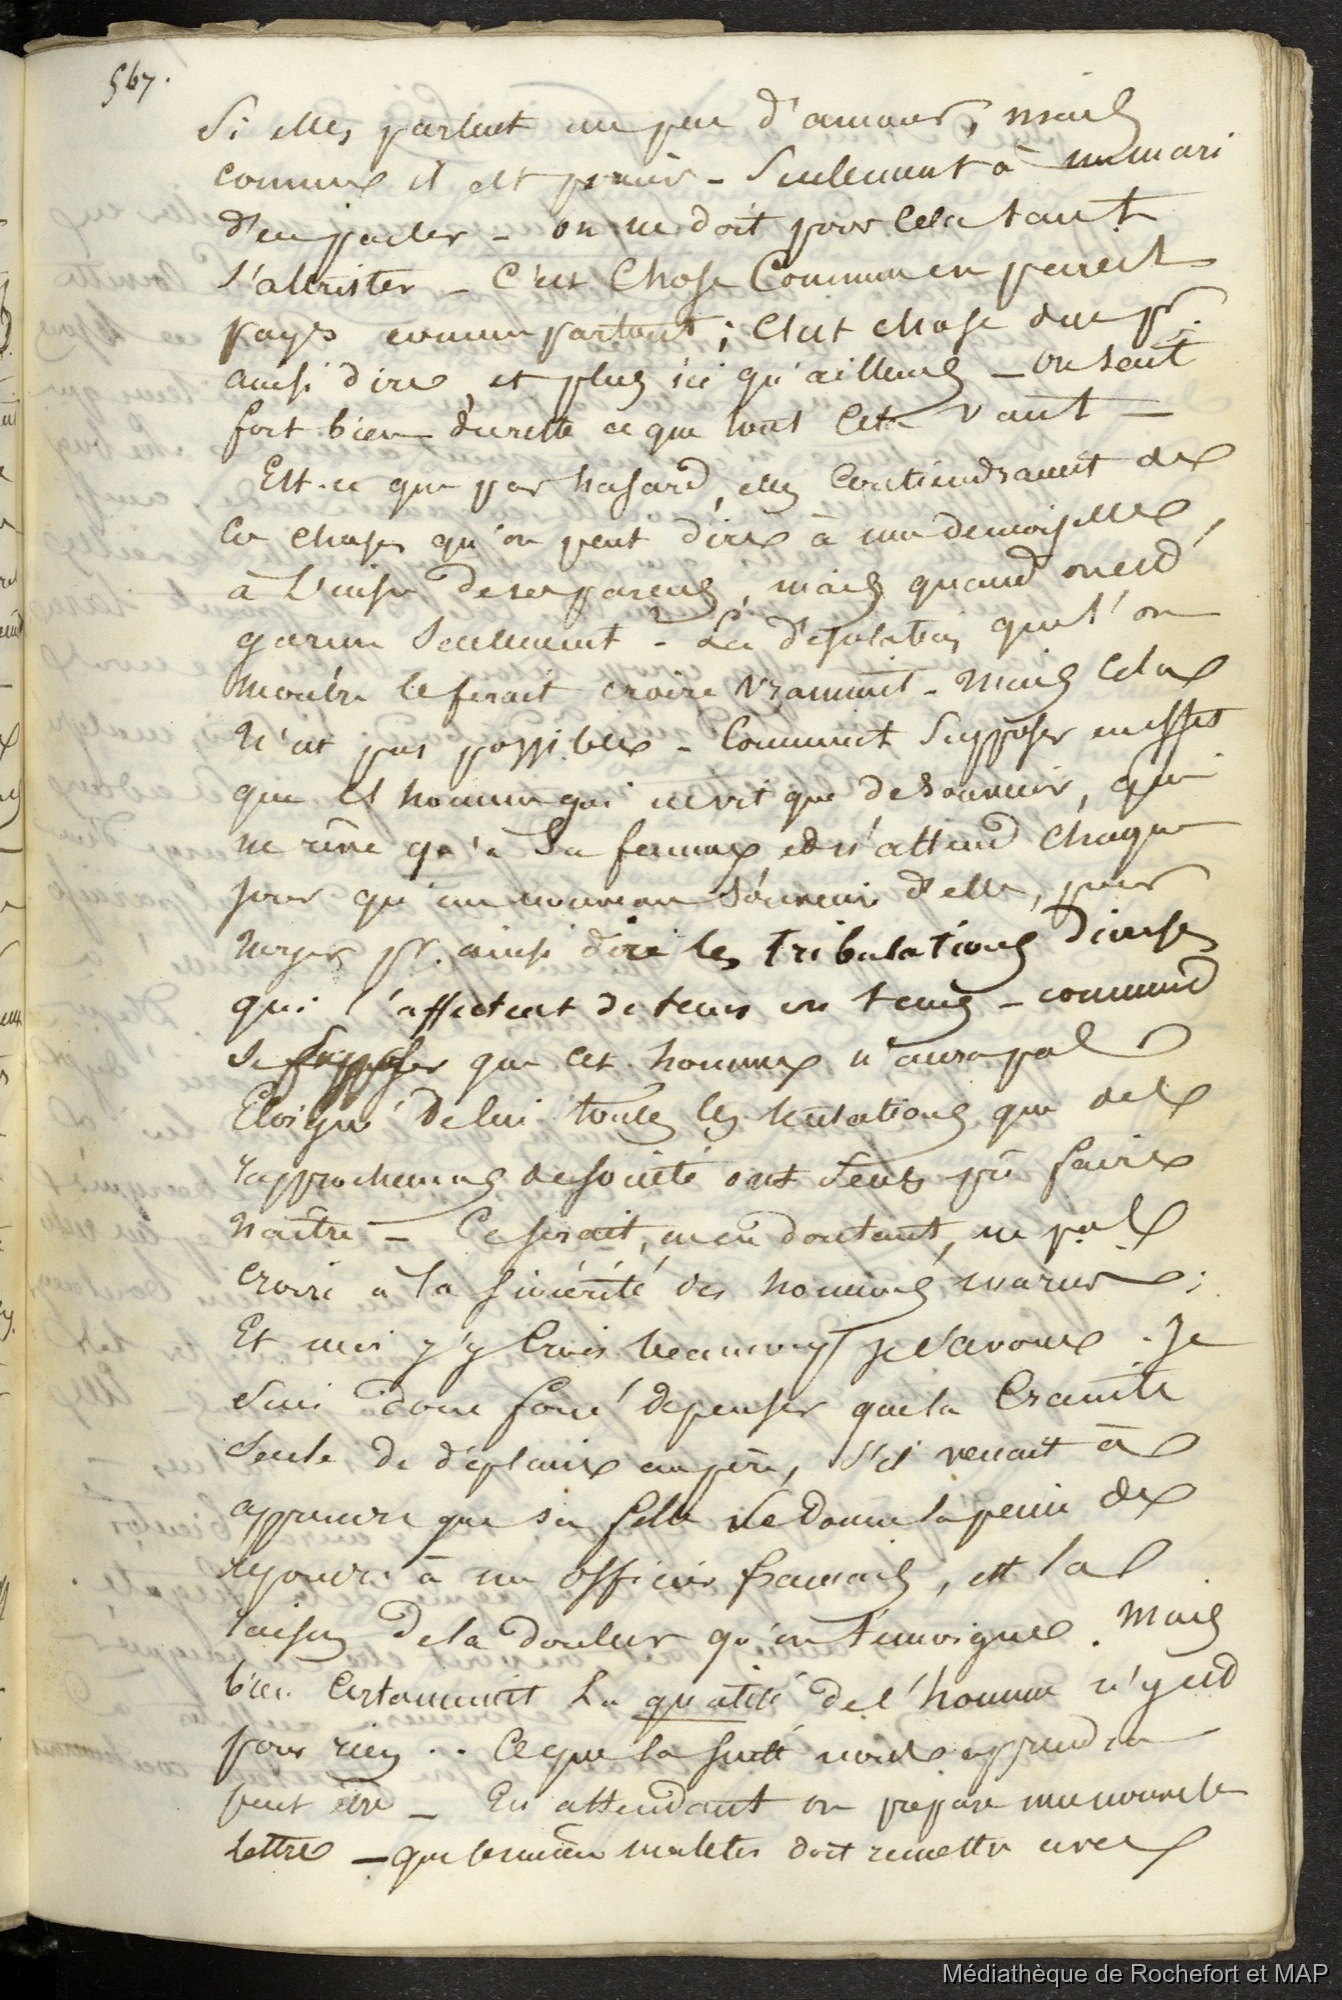 567.
Si elles parlent un peu d'amour, mais
comme il est permis - seulement à un mari
d'en parler - on ne doit pour cela tant
s'attrister - C'est chose commune en pareil
pays comme partout ; C'est chose due pr.
ainsi dire, et plus ici qu'ailleurs - on sent
fort bien du reste ce que tout cela vaut -
Est-ce que par hasard, elles contiendraient de
ces choses qu'on peut dire à une demoiselle,
à l'insu de ses parens, mais quand on est
garçon seulement - La désolation que l'on
montre le ferait croire vraiment - Mais cela
n'est pas possible - Comment supposer en effet
que cet homme qui ne vit que de souvenir, qui
ne rêve qu'à sa femme et n'attend chaque
jour qu'un nouveau souvenir d'elle, pour
noyer pr. ainsi dire les tribulations diverses
qui l'affectent de tems en tems - comment
supposer que cet homme n'aura pas
Eloigné de lui toutes les tentations que des
rapprochemens de société ont seuls pû faire
naître - Ce serait, en en doutant, ne pas
croire à la sincérité des hommes mariés ;
Et moi j'y crois beaucoup je l'avoue. Je
suis donc forcé de penser que la crainte
seule de déplaire au père, s'il venait à
apprendre que sa fille se donne la peine de
répondre à un officier français, est la
raison de la douleur qu'on témoigne. Mais
bien certainement la qualité de l'homme n'y est
pour rien .. Ce que la suite nous apprendra
peut être - En attendant on prépare une nouvelle
lettre - que le même doit remettre avec